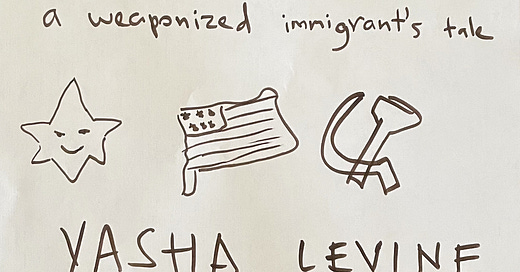 a weaponized immigrant's tale
YASHA LEVINE